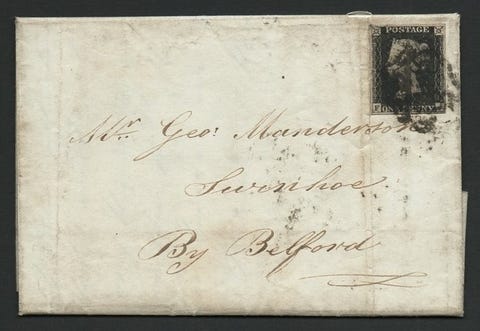 POSTAGE
ONE PENNY
Mr. Geo: Manderson
Swinhoe
By Belford